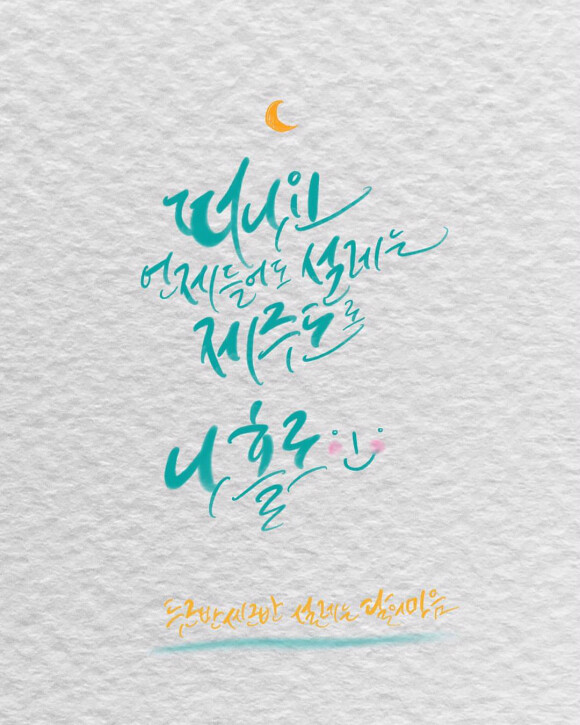 떠나요
언제들어도 설레는
제주도로
나홀로
두근반세근반 설레는 달의마음